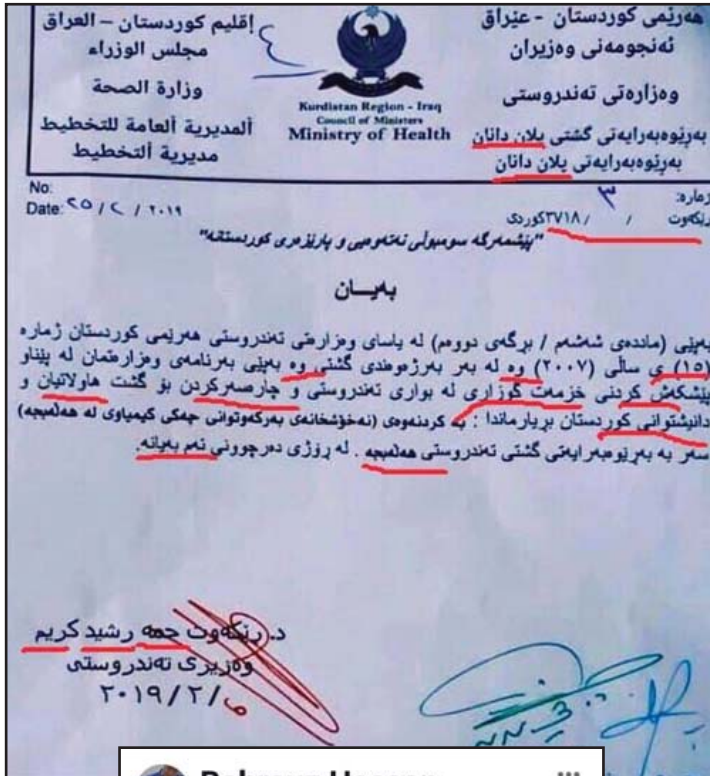 هەرێمی کوردستان - عێراق
ئەنجومەنی وەزیران
وەزارەتی تەندروستی
بەڕێوەبەرایەتی گشتی پلان دانان
بەڕێوەبەرایەتی پلان دانان
Kurdistan Region - Iraq
Council of Ministers
Ministry of Health
إقليم كوردستان – العراق
مجلس الوزراء
وزارة الصحة
ألمديرية ألعامة للتخطيط
مديرية ألتخطيط
ژمارە: ٣
ڕێکەوت / / ٢٧١٨ کوردی
No:
Date: ٢٥ / ٢ / ٢٠١٩
"پێشمەرگە سومبولی نەتەوەیی و پارێزەری کوردستانە"
بەیـــان
بەپێی (ماددەی شەشەم / بڕگەی دووەم) لە یاسای وەزارەتی تەندروستی هەرێمی کوردستان ژمارە
(١٥) ی ساڵی (٢٠٠٧) وە لە بەر بەرژەوەندی گشتی وە بەپێی بەرنامەی وەزارەتمان لە پێناو
پێشکەش کردنی خزمەت گوزاری لە بواری تەندروستی و چارەسەرکردن بۆ گشت هاوڵاتیان و
دانیشتوانی کوردستان بڕیارماندا : بە کردنەوەی (نەخۆشخانەی بەرکەوتوانی چەکی کیمیاوی لە هەڵەبجە)
سەر بە بەڕێوەبەرایەتی گشتی تەندروستی هەڵەبجە . لە ڕۆژی دەرچوونی ئەم بەیانە.
د. ڕێکەوت حمە رشید کریم
وەزیری تەندروستی
٢٠١٩ / ٢ / ٦